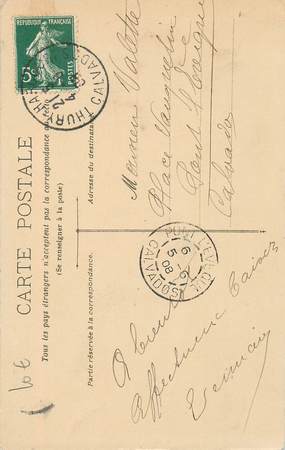 RÉPUBLIQUE FRANÇAISE
5c
POSTES
THURY-HARCOURT
CALVADOS
CARTE POSTALE
Tous les pays étrangers n'acceptent pas la correspondance au recto
(Se renseigner à la poste)
Partie réservée à la correspondance.
Adresse du destinataire
Monsieur Valette
Place Vauquelin
Pont l'Evêque
Calvados
PONT-L'EVEQUE
6-5
08
CALVADOS
A bientôt
Affectueux baisers
lot